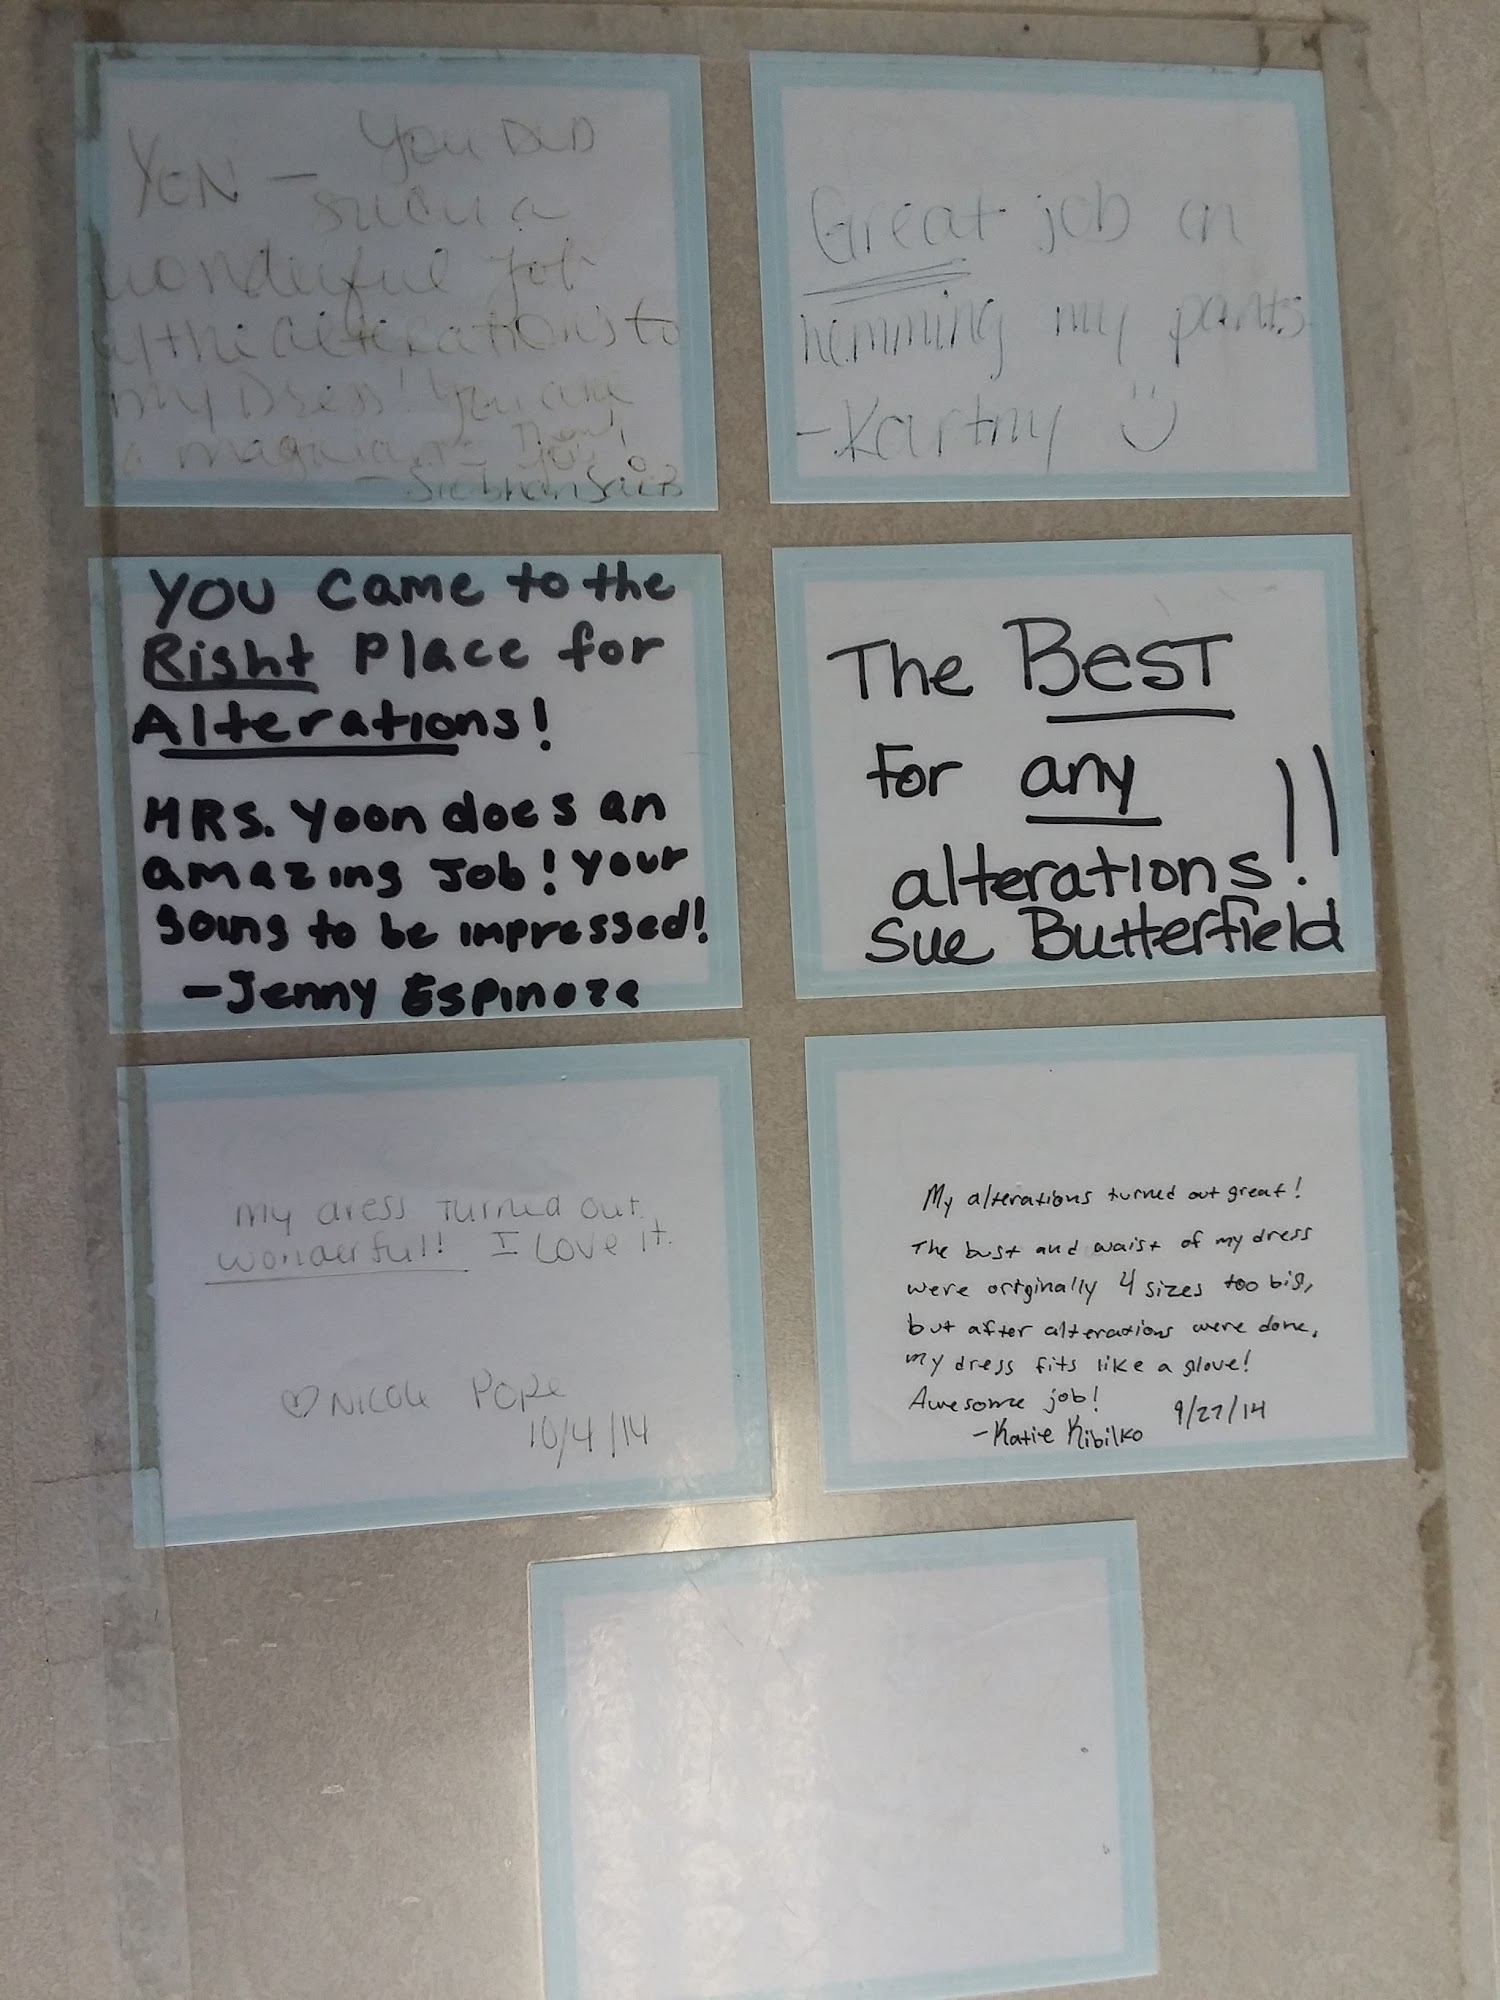 YON — You DID
such a
wonderful job
w/the alterations to
my Dress! You are
a magician - Thank
you!
Great job on
hemming my pants
-Kartny
You came to the
Right Place for
Alterations!
MRS. Yoon does an
amazing Job! Your
going to be impressed!
-Jenny Espinoza
The BEST
for any
alterations!!
Sue Butterfield
My dress turned out
wonderful! I love it.
♡ Nicole Pope
10/4/14
My alterations turned out great!
The bust and waist of my dress
were originally 4 sizes too big,
but after alterations were done,
my dress fits like a glove!
Awesome job!
-Katie Kibilko 9/27/14